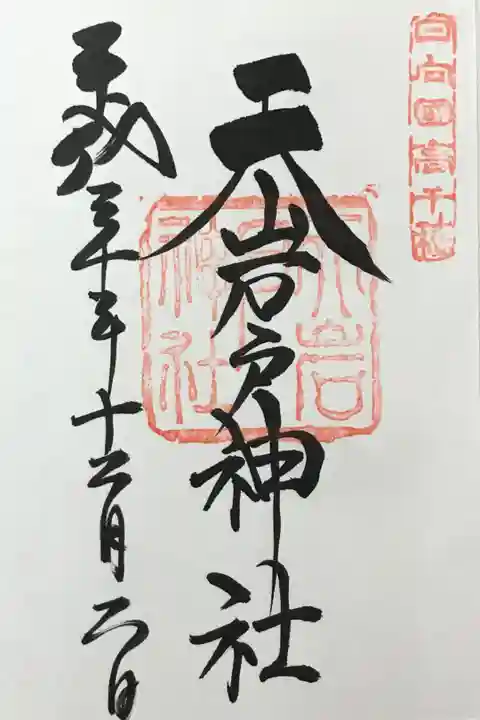 日向国高千穂
天岩戸神社
天岩戸神社
平成三十年十二月二日